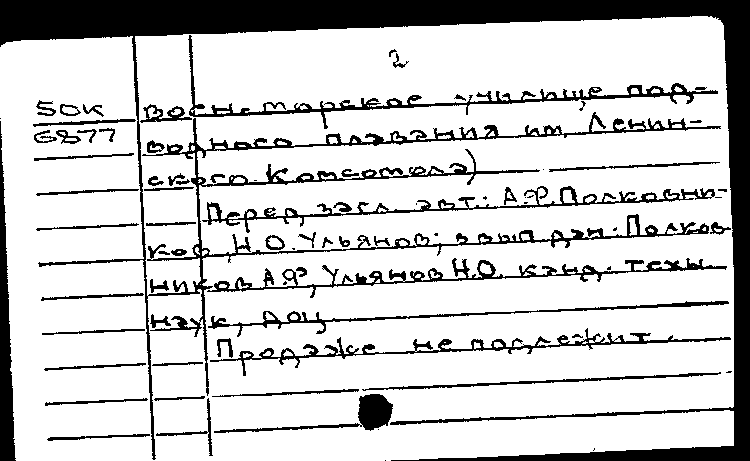 2
50К воен.-морское училище под-
6877 водного плавания им. Ленин-
ского Комсомола)
Перед загл. авт.: А.Ф.Полковни-
ков, Н.О.Ульянов; в вып.дан.: Полков
ников А.Ф., Ульянов Н.О. канд. техн.
наук, доц.
Продаже не подлежит.